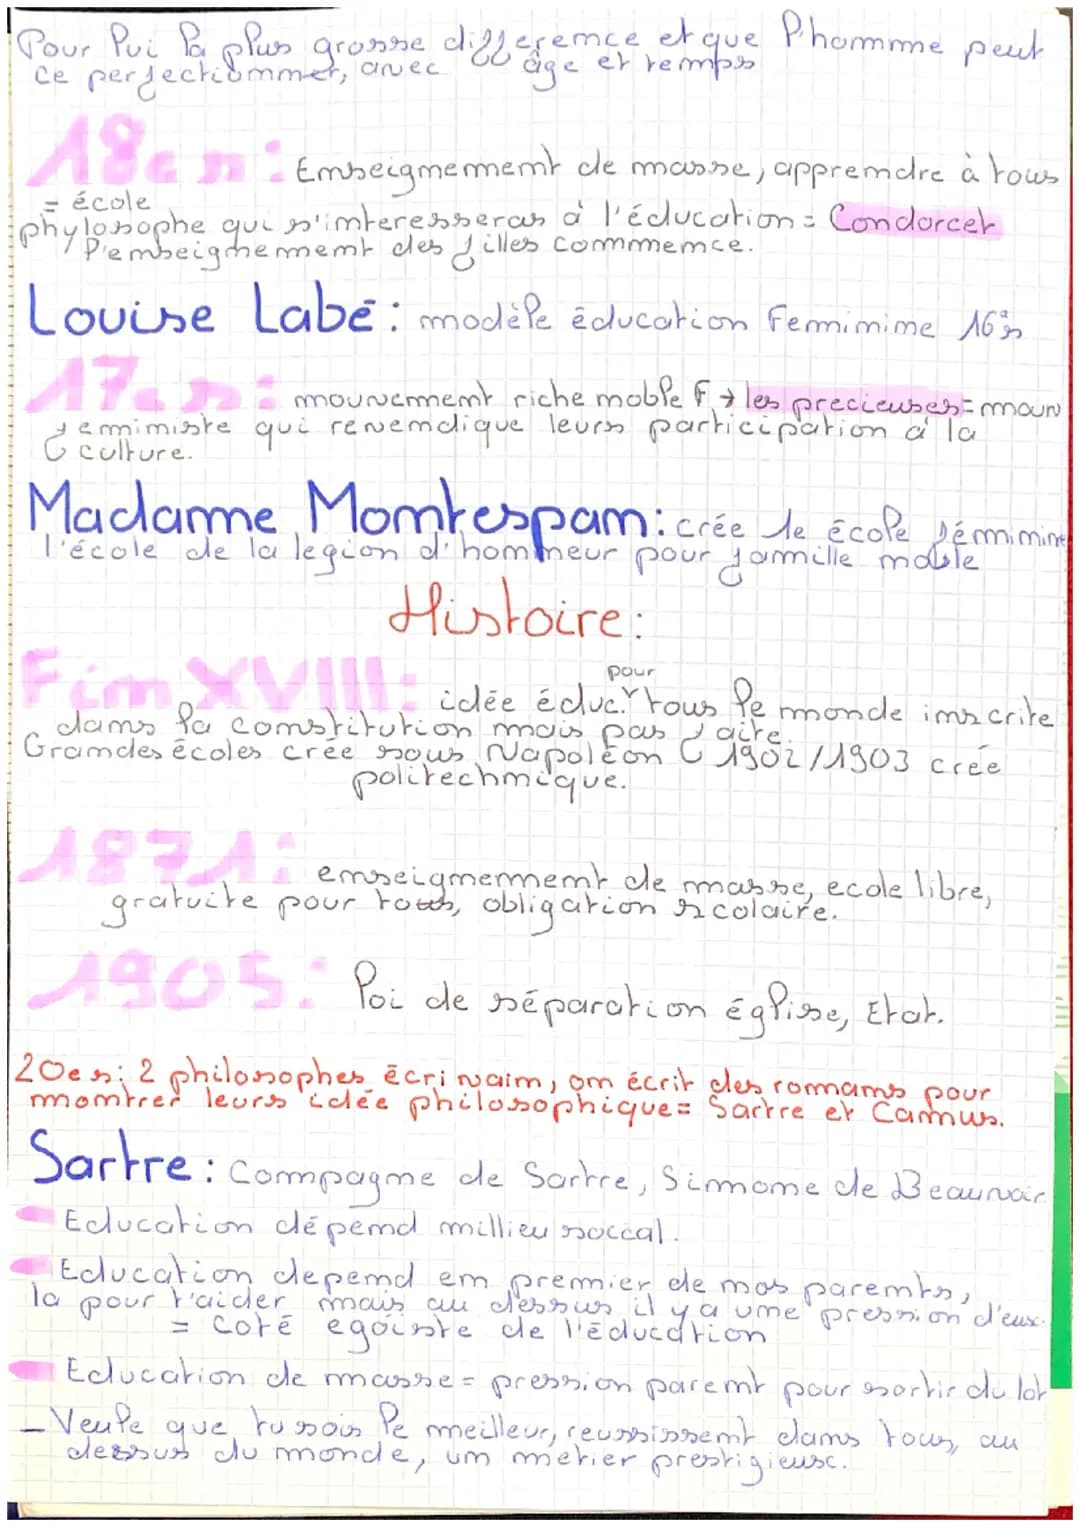 Pour lui la plus grosse difference et que l'homme peut
ce perfectionner, avec âge et temps
18en: Enseignement de masse, apprendre à tous
= école
phylosophe qui s'interesseras à l'éducation = Condorcet
l'enseignement des filles commence.
Louise Labé: modèle éducation Feminime 16es
17es: mouvement riche noble F → les precieuses = mouv
feministe qui revendique leurs participation à la
culture.
Madame Montespan: crée 1e école féminine
l'école de la legion d'honneur pour famille noble
Histoire:
Fin XVIII: idée éduc. pour tous le monde inscrite
dans la constitution mais pas faite.
Grandes écoles crée sous Napoléon 1902/1903 crée
politechnique.
1871: enseignement de masse, ecole libre,
gratuite pour tous, obligation scolaire.
1905: loi de séparation église, Etat.
20es: 2 philosophes écrivain, on écrit des romans pour
montrer leurs idée philosophique = Sartre et Camus.
Sartre: Compagne de Sartre, Simone de Beauvoir
Education dépend millieu soccal.
Education depend en premier de nos parents,
la pour t'aider mais au dessus il y a une pression d'eux.
= coté egoiste de l'éducation
Education de masse = pression parent pour sortir du lot
- Veule que tu sois le meilleur, reussissent dans tous, au
dessus du monde, un metier prestigieuse.